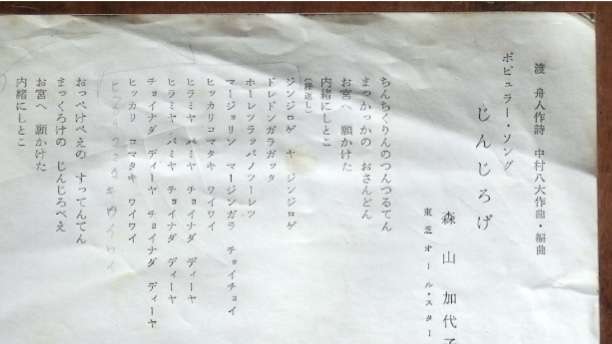 渡 舟人作詩 中村八大作曲・編曲
ポピュラー・ソング
じんじろげ
森山加代子
東芝オール・スター
ちんちくりんのつんつるてん
まっかっかの おさんどん
お宮へ 願かけた
内緒にしとこ
ジンジロゲ ヤ ジンジロゲ
ドレドンガラガッタ
ホーレツラッパノツーレツ
マージョリン マージンガラ チョイチョイ
ヒッカリコマタキ ワイワイ
ヒラミヤ パミヤ チョイナダ ディーヤ
ヒラミヤ パミヤ チョイナダ ディーヤ
チョイナダ ディーヤ チョイナダ ディーヤ
ヒッカリ コマタキ ワイワイ
おっぺけぺえの すってんてん
まっくろけの じんじろべえ
お宮へ 願かけた
内緒にしとこ